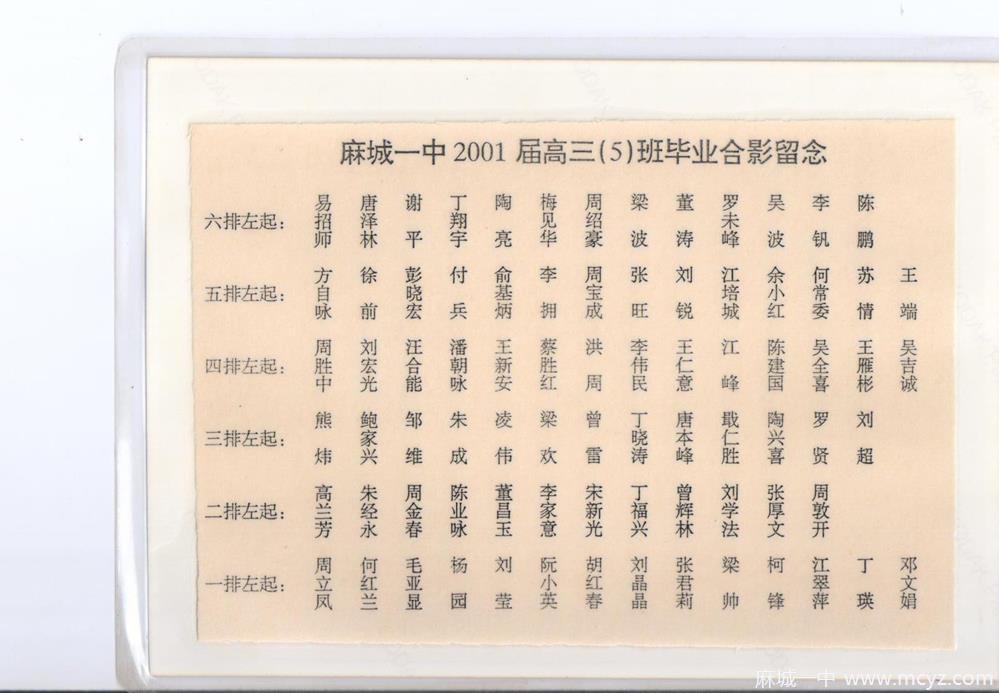 麻城一中 2001 届高三(5)班毕业合影留念
六排左起: 易招师 唐泽林 谢平 丁翔宇 陶亮 梅见华 周绍豪 梁波 董涛 罗未峰 吴波 李钒 陈鹏
五排左起: 方自咏 徐前 彭晓宏 付兵 俞基炳 李拥 周宝成 张旺 刘锐 江培城 余小红 何常委 苏情 王端
四排左起: 周胜中 刘宏光 汪合能 潘朝咏 王新安 蔡胜红 洪周 李伟民 王仁意 江峰 陈建国 吴全喜 王雁彬 吴吉诚
三排左起: 熊炜 鲍家兴 邹维 朱成 凌伟 梁欢 曾雷 丁晓涛 唐本峰 戢仁胜 陶兴喜 罗贤 刘超
二排左起: 高兰芳 朱经永 周金春 陈业咏 董昌玉 李家意 宋新光 丁福兴 曾辉林 刘学法 张厚文 周敦开
一排左起: 周立凤 何红兰 毛亚显 杨园 刘莹 阮小英 胡红春 刘晶晶 张君莉 梁帅 柯锋 江翠萍 丁瑛 邓文娟
麻城一中 www.mcyz.com